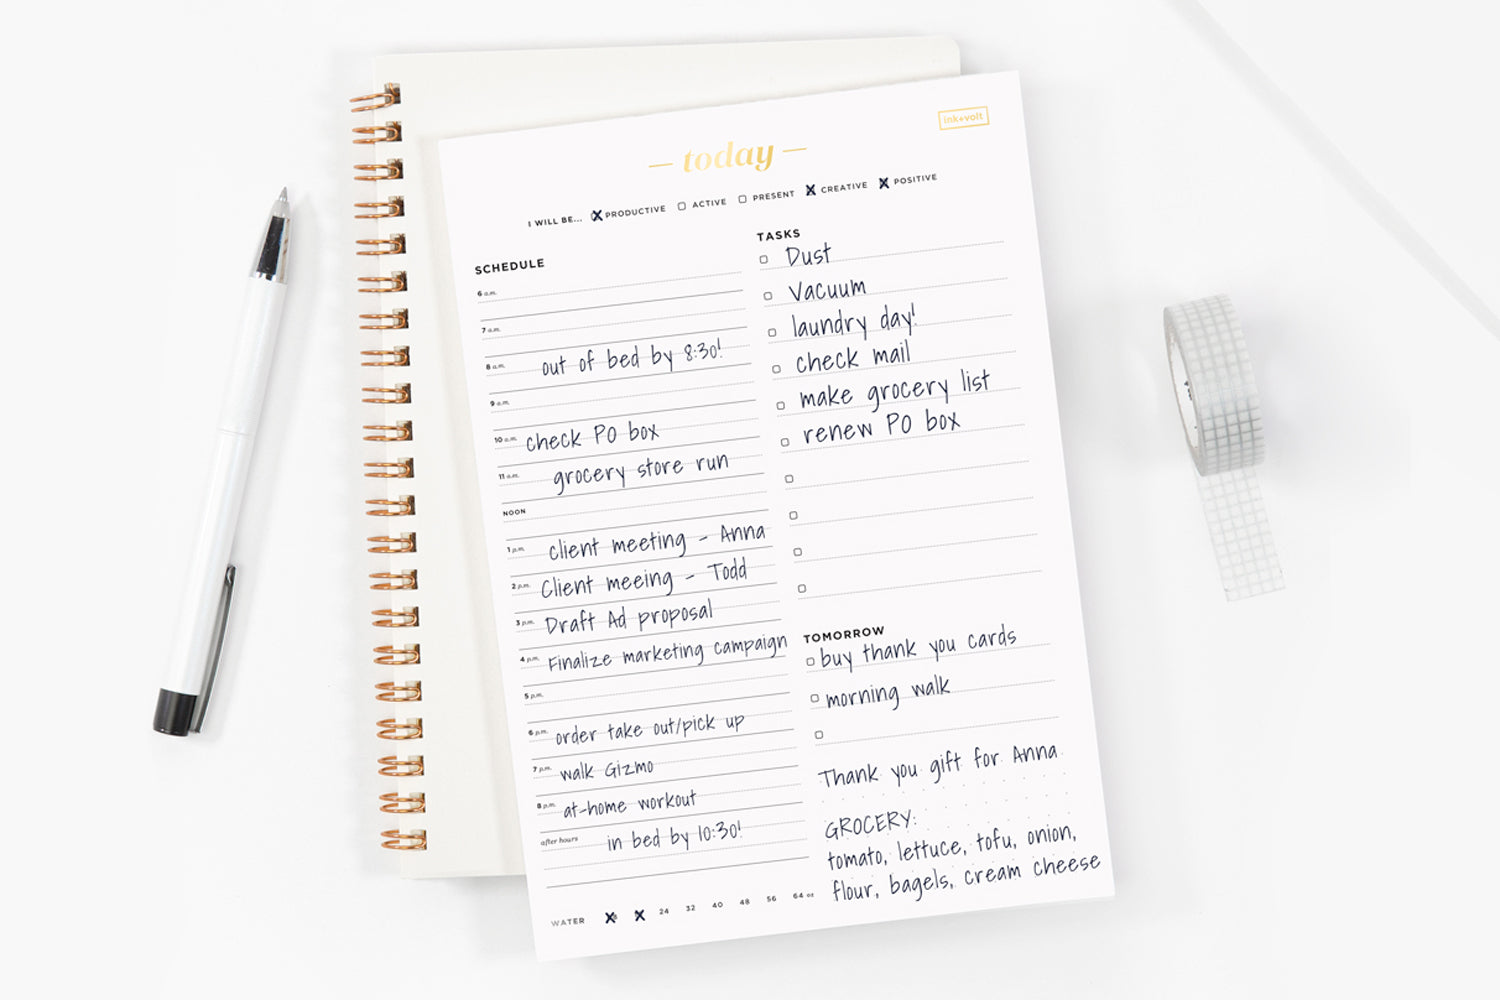 ink+volt
today
I WILL BE... PRODUCTIVE ACTIVE PRESENT CREATIVE POSITIVE
SCHEDULE
6 a.m.
7 a.m.
8 a.m. out of bed by 8:30!
9 a.m.
10 a.m. check PO box
11 a.m. grocery store run
NOON
1 p.m. client meeting - Anna
2 p.m. Client meeing - Todd
3 p.m. Draft Ad proposal
4 p.m. Finalize marketing campaign
5 p.m.
6 p.m. order take out/pick up
7 p.m. walk Gizmo
8 p.m. at-home workout
after hours in bed by 10:30!
WATER 8 24 32 40 48 56 64 oz
TASKS
Dust
Vacuum
laundry day!
check mail
make grocery list
renew PO box
TOMORROW
buy thank you cards
morning walk
Thank you gift for Anna
GROCERY:
tomato, lettuce, tofu, onion,
flour, bagels, cream cheese